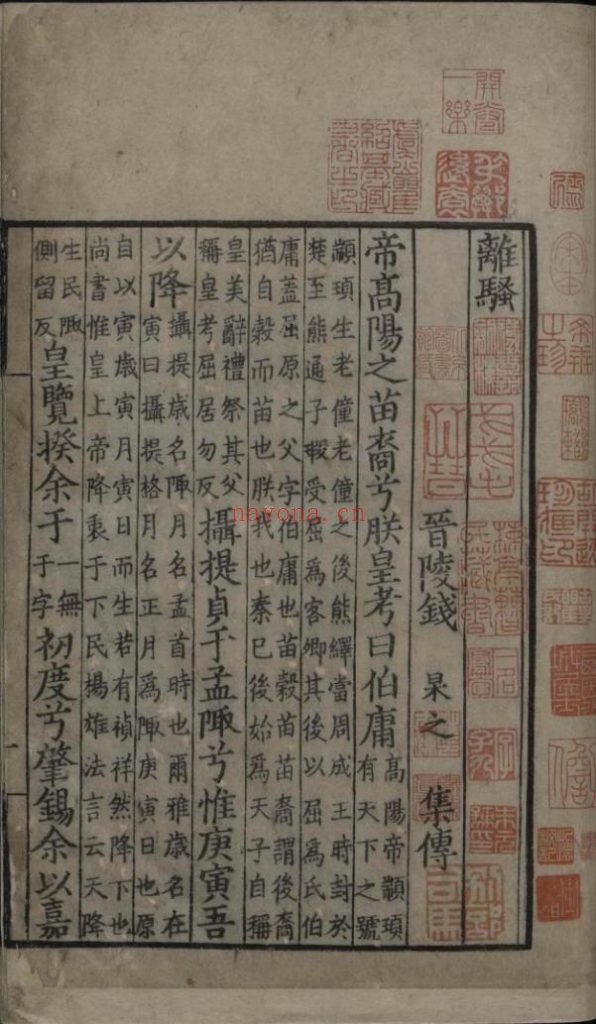 開卷一樂
離騷
晉陵錢 杲之 集傳
帝髙陽之苗裔兮朕皇考曰伯庸
髙陽帝顓頊
有天下之號
顓頊生老僮老僮之後熊繹當周成王時封於
楚至熊通子瑕受屈爲客卿其後以屈爲氏伯
庸蓋屈原之父字伯庸也苗榖苗苗裔謂後裔
猶自榖而苗也朕我也秦已後始爲天子自稱
皇美辭禮祭其父
稱皇考屈居勿反
攝提貞于孟陬兮惟庚寅吾
以降
攝提歳名陬月名孟首時也爾雅歳名在
寅曰攝提格月名正月爲陬庚寅日也原
自以寅歳寅月寅日而生若有禎祥然降下也
尚書惟皇上帝降衷于下民揚雄法言云天降
生民陬
側留反
皇覽揆余于
一無
于字
初度兮肇錫余以嘉
nayona.cn